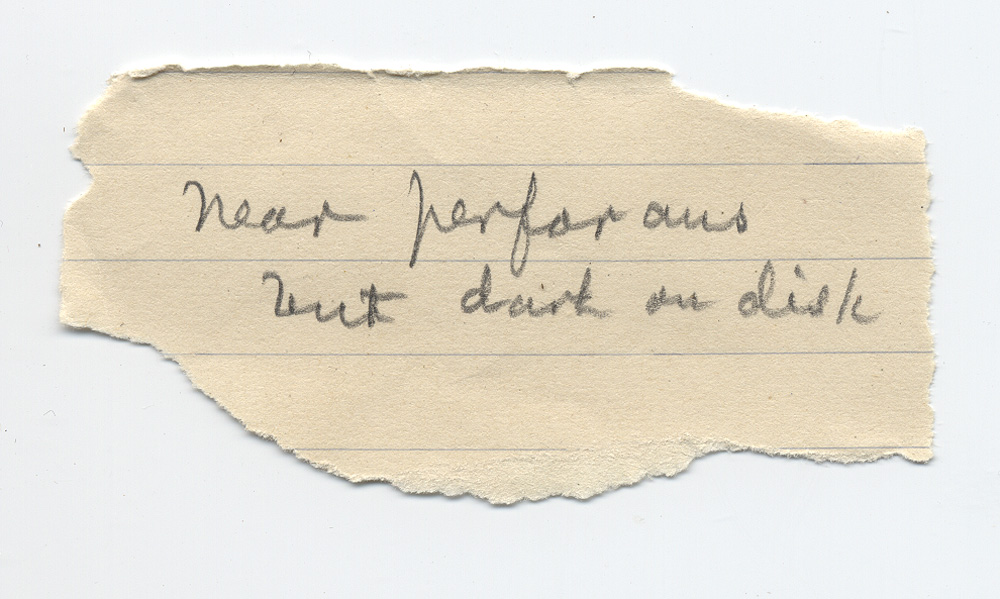 Near perforans
but dark on disk